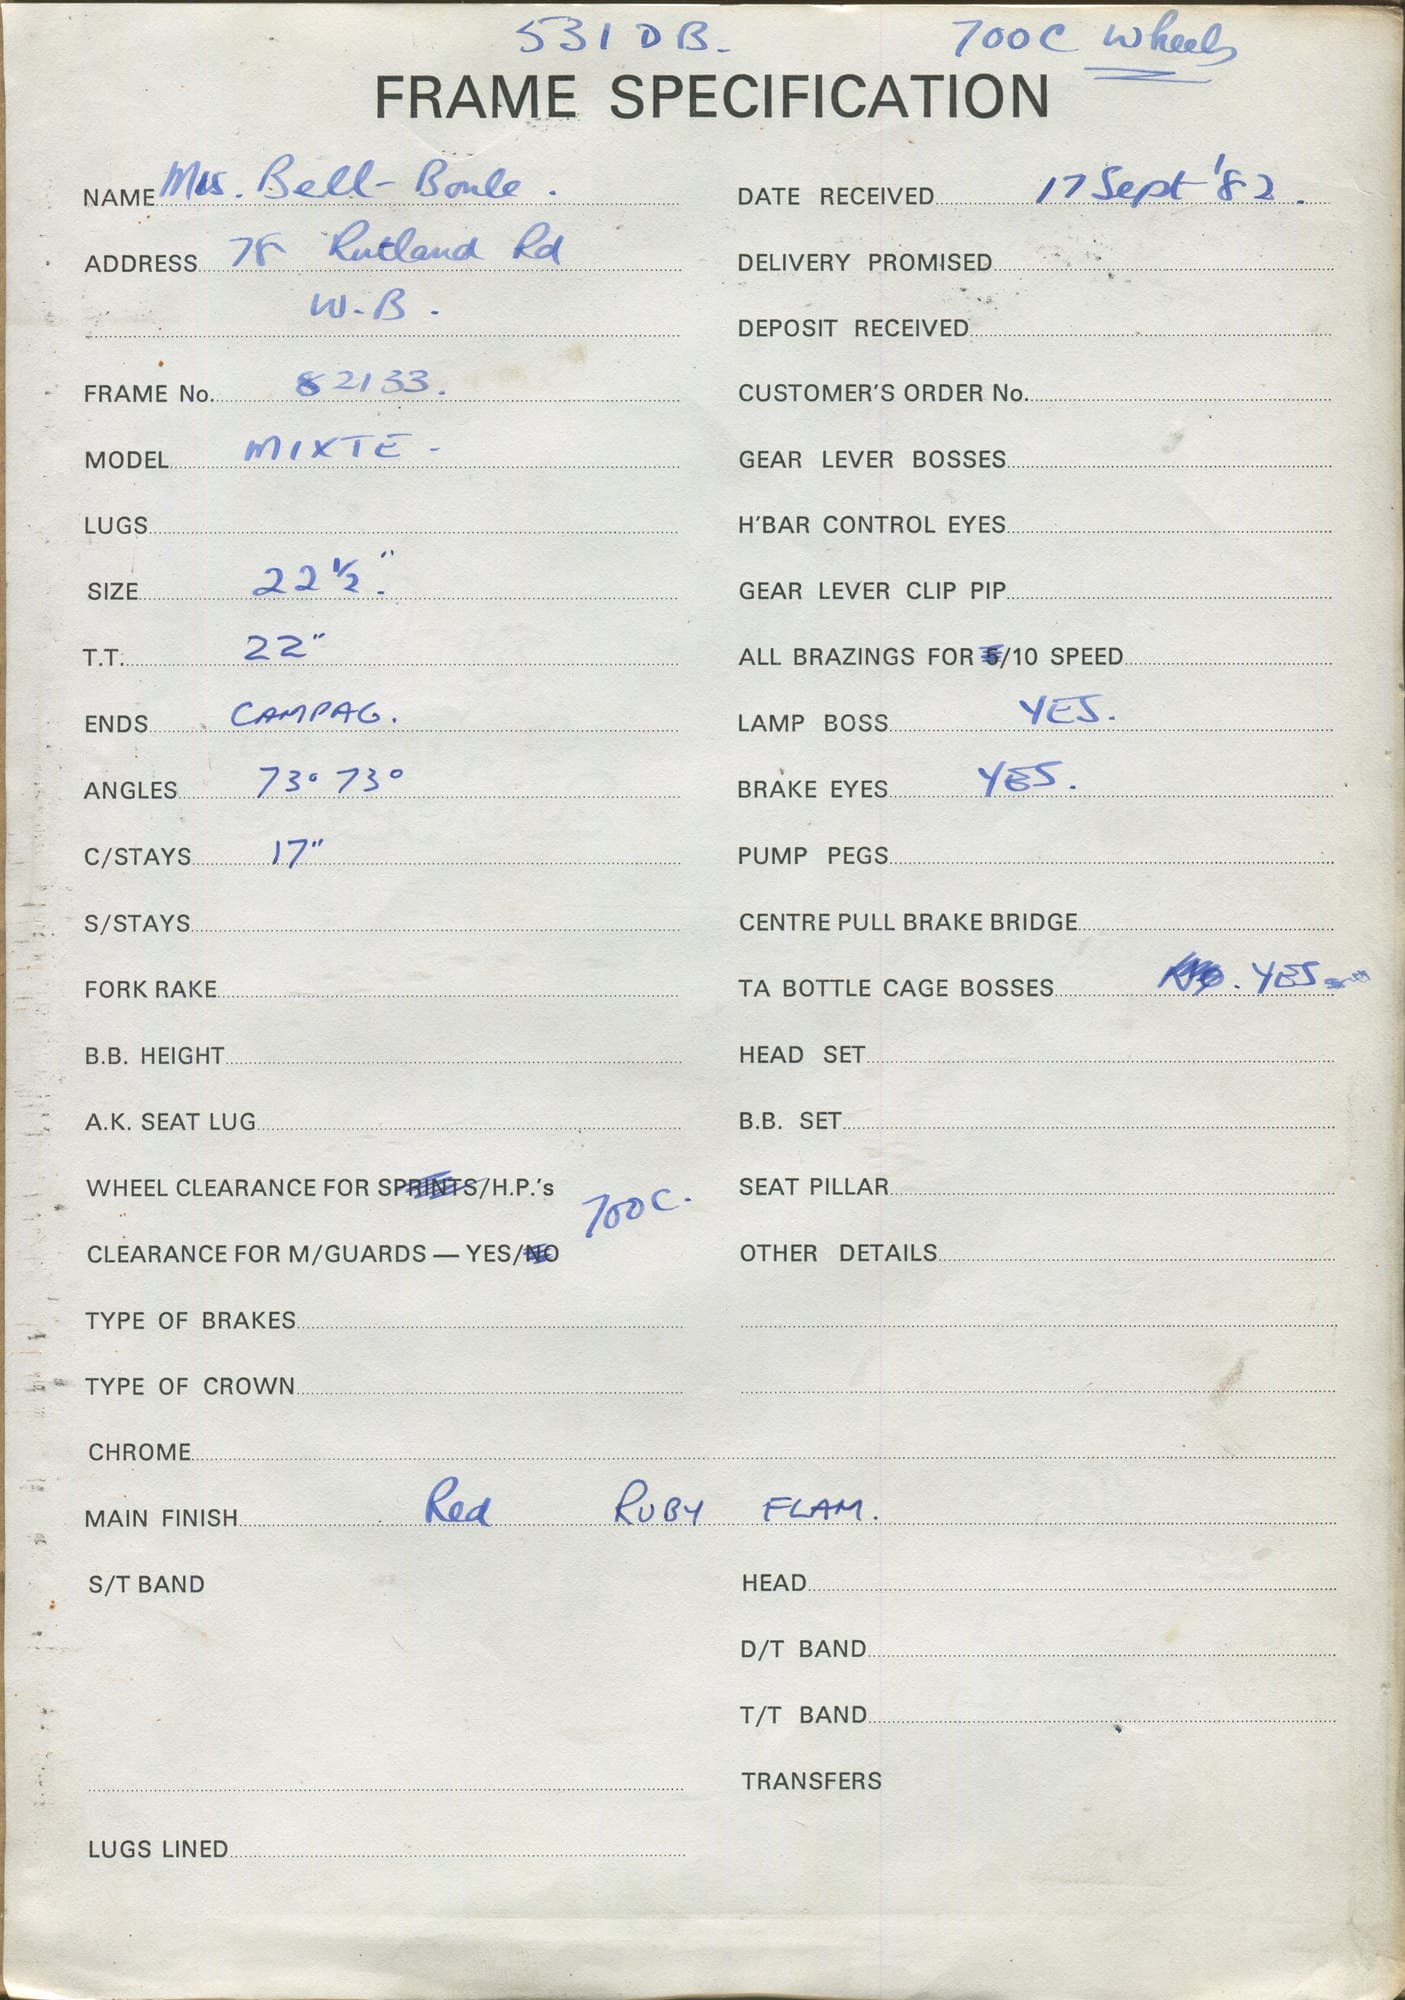 531 DB. 700C Wheels
FRAME SPECIFICATION
NAME Mrs. Bell-Boule.
ADDRESS 78 Rutland Rd
W.B.
FRAME No. 82133.
MODEL MIXTE -
LUGS
SIZE 22 1/2".
T.T. 22"
ENDS CAMPAG.
ANGLES 73° 73°
C/STAYS 17"
S/STAYS
FORK RAKE
B.B. HEIGHT
A.K. SEAT LUG
WHEEL CLEARANCE FOR SPRINTS/H.P.'s
700C.
CLEARANCE FOR M/GUARDS — YES/NO
TYPE OF BRAKES
TYPE OF CROWN
CHROME
MAIN FINISH Red RUBY FLAM.
S/T BAND
LUGS LINED
DATE RECEIVED 17 Sept '82.
DELIVERY PROMISED
DEPOSIT RECEIVED
CUSTOMER'S ORDER No.
GEAR LEVER BOSSES
H'BAR CONTROL EYES
GEAR LEVER CLIP PIP
ALL BRAZINGS FOR 5/10 SPEED
LAMP BOSS YES.
BRAKE EYES YES.
PUMP PEGS
CENTRE PULL BRAKE BRIDGE
TA BOTTLE CAGE BOSSES No. YES
HEAD SET
B.B. SET
SEAT PILLAR
OTHER DETAILS
HEAD
D/T BAND
T/T BAND
TRANSFERS